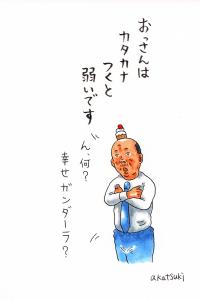 おっさんは
カタカナ
つくと
弱いです
ん、何?
幸せガンダーラ?
akatsuki